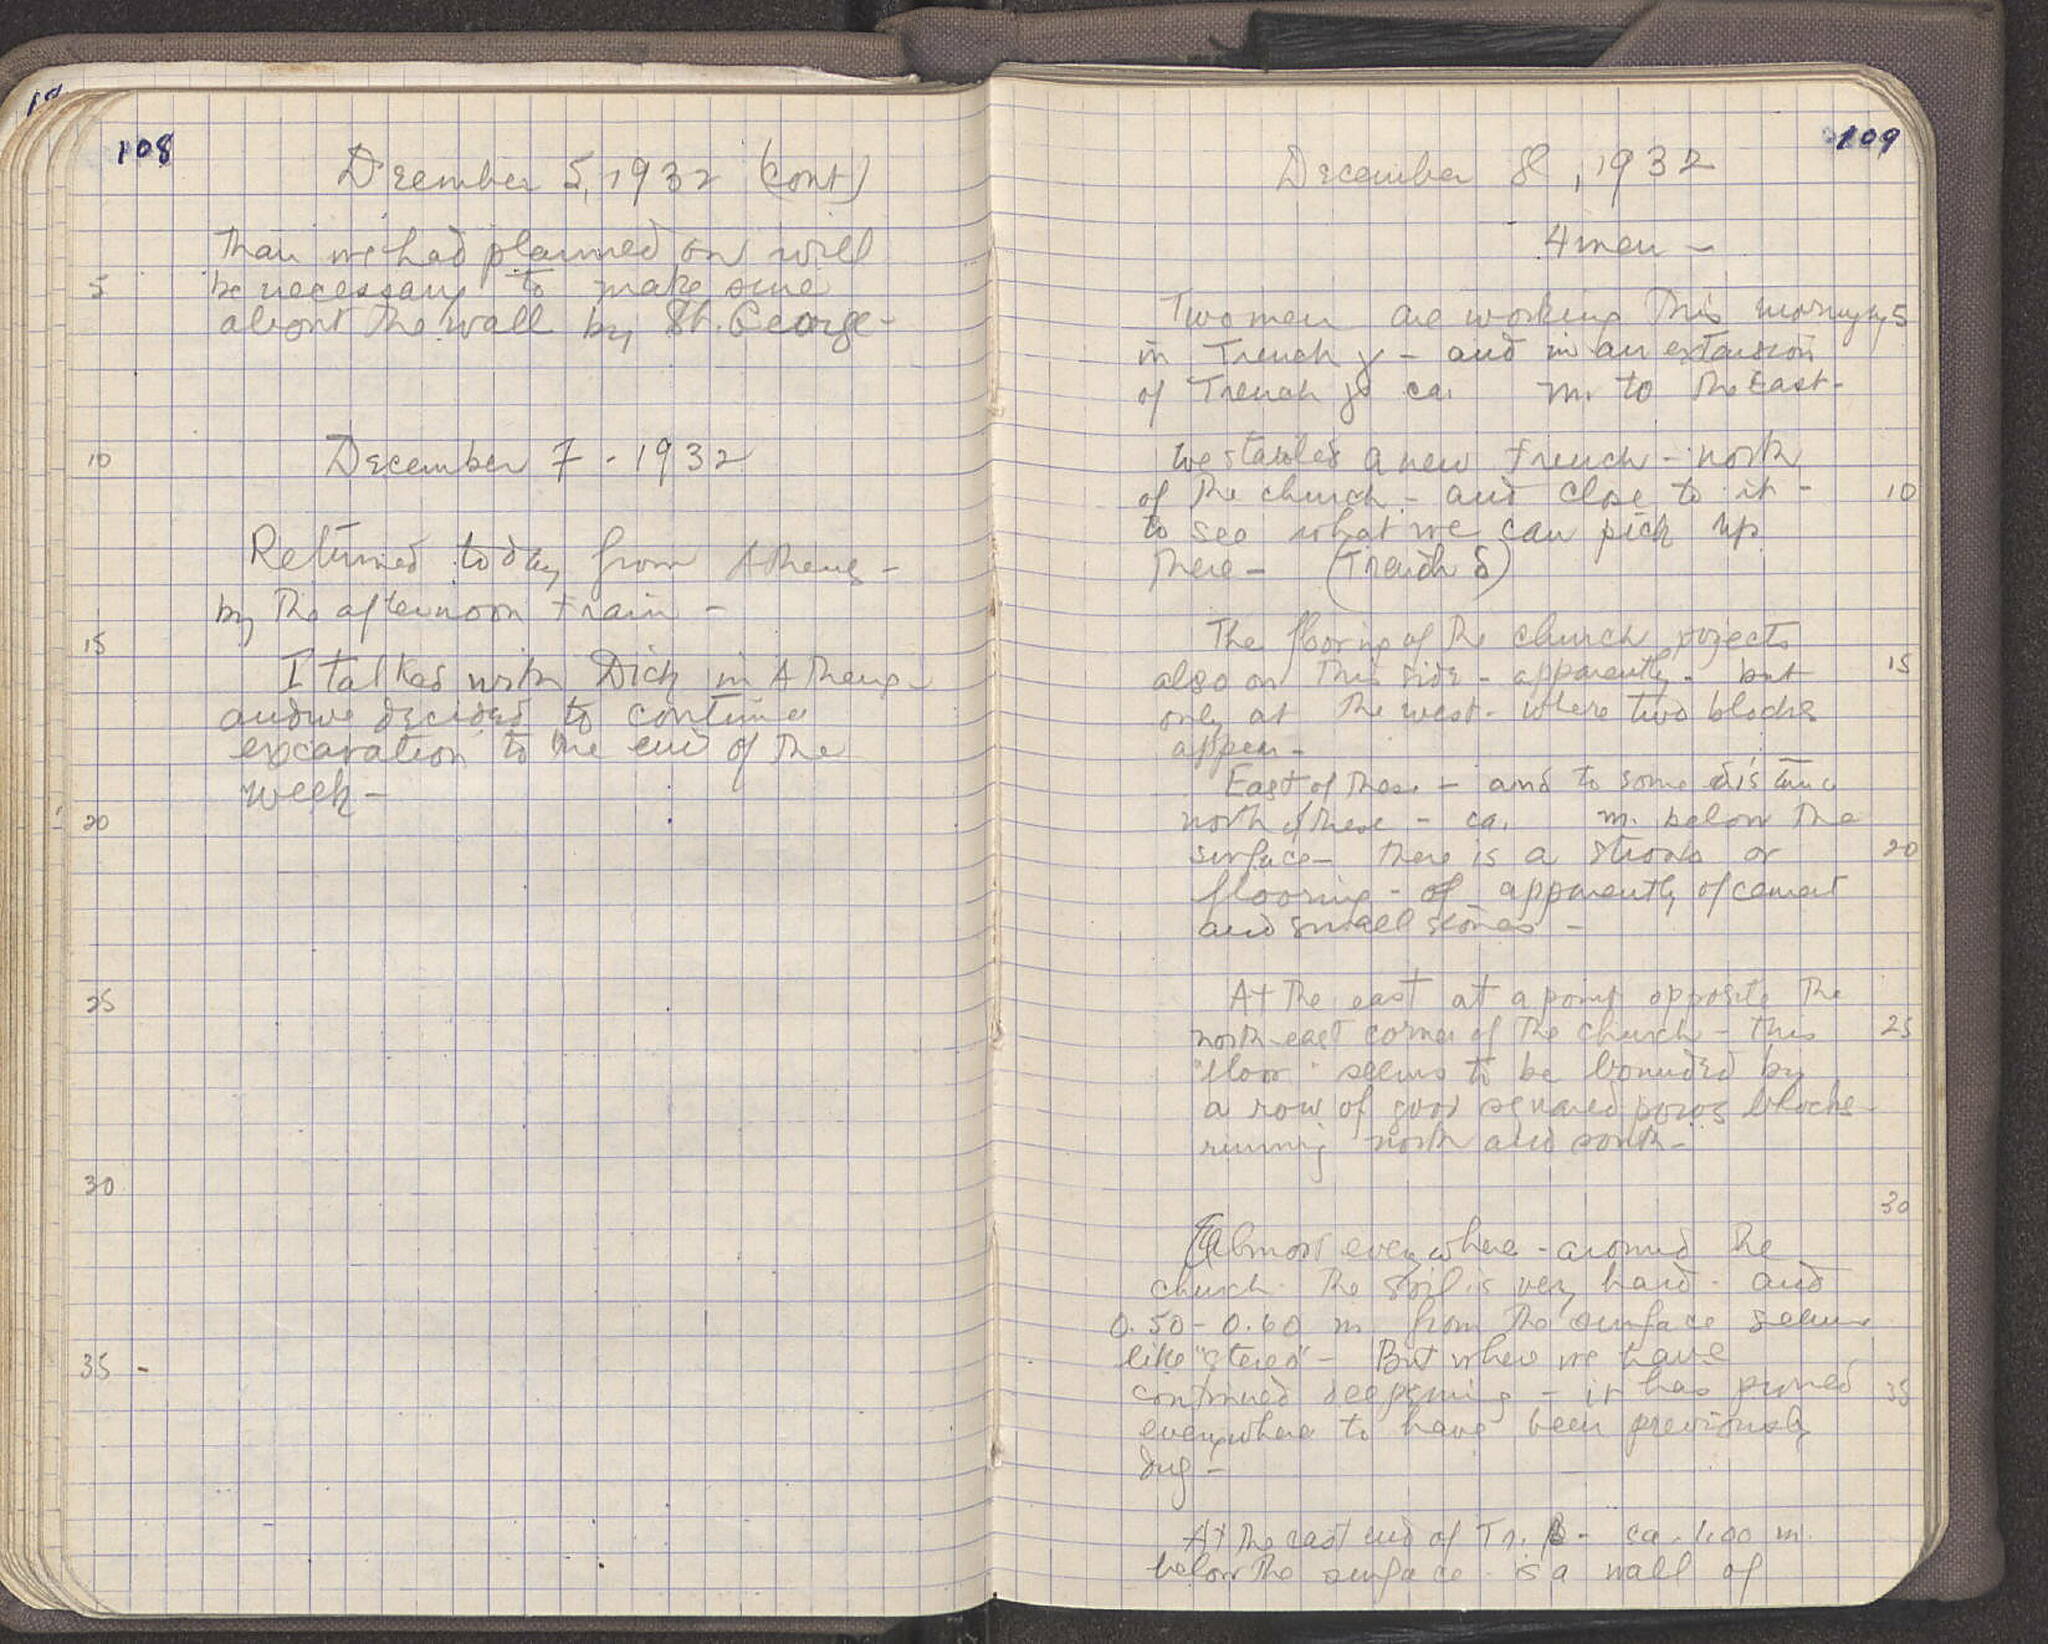 108
December 5, 1932 (cont)
than we had planned on will
5
be necessary to make sure
about the wall by St. George -
10
December 7 - 1932
Returned today from Athens -
by the afternoon train -
15
I talked with Dick in Athens -
and we decided to continue
excavation to the end of the
week -
20
25
30
35 -
109
December 8, 1932
4 men -
Two men are working this morning 5
in Trench γ - and in an extension
of Trench γ ca. m. to the East -
We started a new trench - north
of the church - and close to it - 10
to see what we can pick up
there - (Trench δ)
The flooring of the church projects
also on this side - apparently - but 15
only at the west - where two blocks
appear -
East of these - and to some distance
north of these - ca. m. below the
surface - there is a strosis or 20
flooring - of apparently of cement
and small stones -
At the east at a point opposite the
north-east corner of the church - this 25
"floor" seems to be bounded by
a row of good squared poros blocks
running north and south -
30
(Almost everywhere - around the
church - the soil is very hard - and
0.50 - 0.60 m from the surface seems
like "stereo" - But where we have
continued deepening - it has proved 35
everywhere to have been previously
dug -
At the east end of Tr. β - ca. 1.00 m.
below the surface - is a wall of